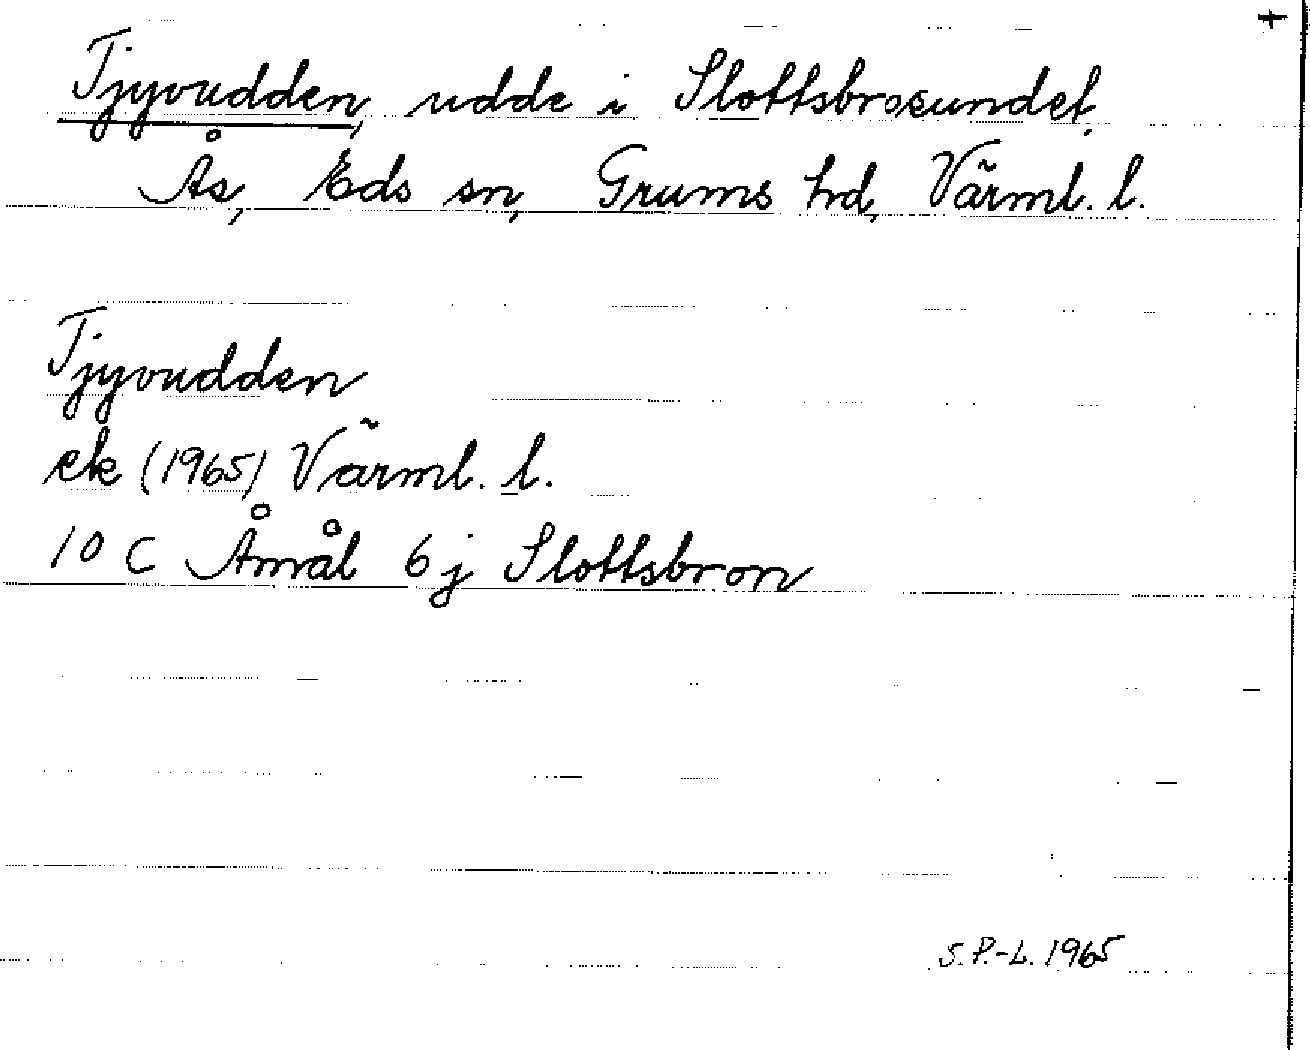 +
Tjyvudden, udde i Slottsbrosundet,
Ås, Eds sn, Grums hd, Värml. l.
Tjyvudden
ek (1965) Värml. l.
10 C Åmål 6j Slottsbron
S.P.-L. 1965